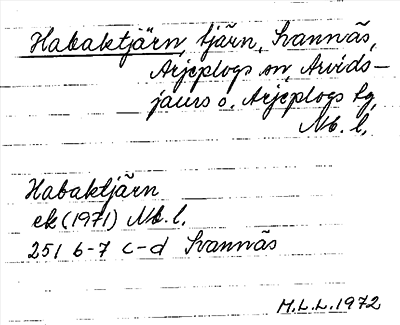 Habaktjärn, tjärn, Svannäs,
Arjeplogs sn, Arvids-
jaurs o. Arjeplogs tg,
Nb. l.
Habaktjärn
ek (1971) Nb. l.
251 6-7 c-d Svannäs
M.L.L. 1972